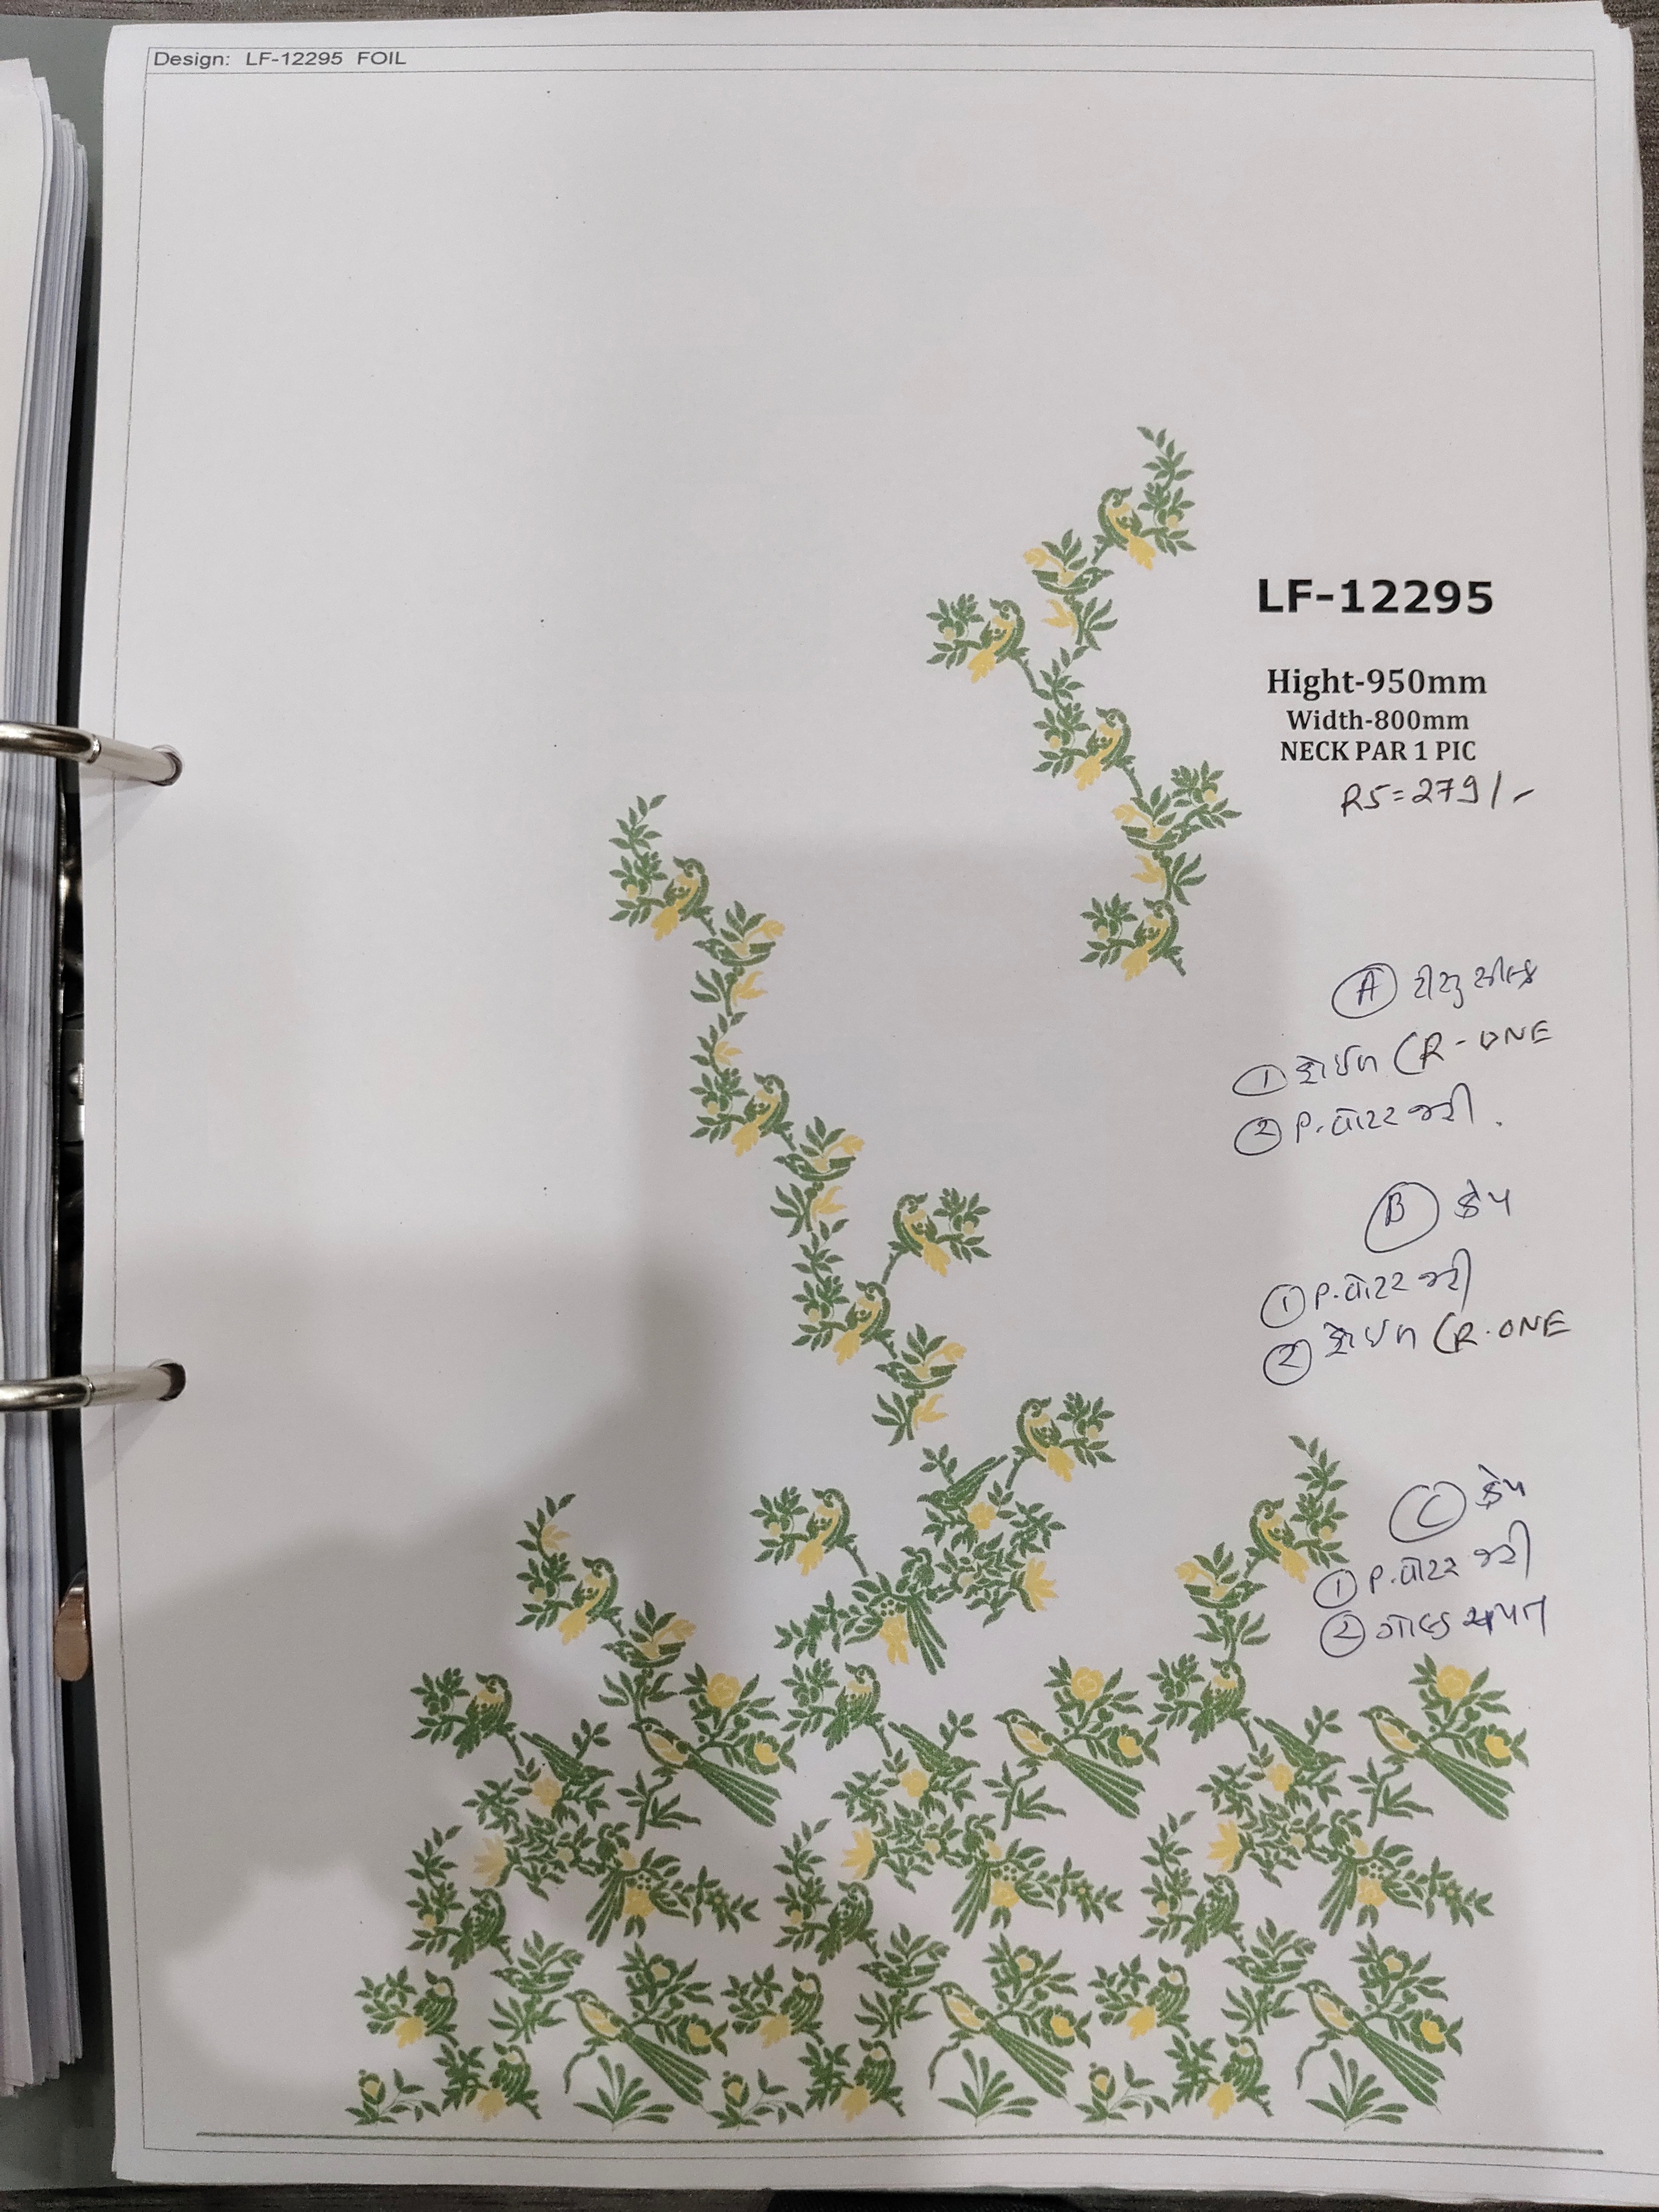 Design: LF-12295 FOIL
LF-12295
Hight-950mm
Width-800mm
NECK PAR 1 PIC
RS=279/-
A ટીસ્યુ સીલ્ક
① ફોઈલ (R-ONE
② P. વોટર જરી.
B ક્રેપ
① P. વોટર જરી
② ફોઈલ (R.ONE
C ક્રેપ
① P. વોટર જરી
② ગોલ્ડ